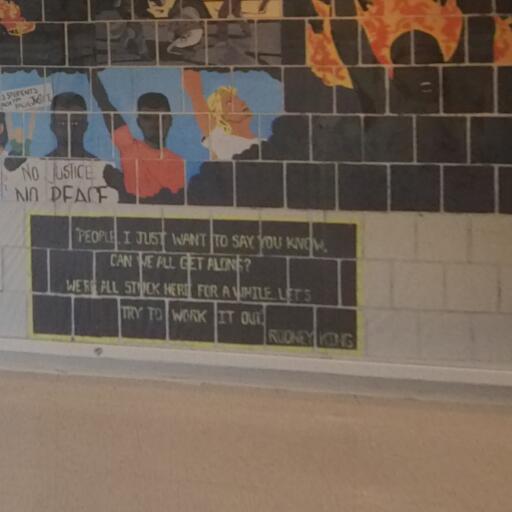 STUDENTS
NO JUSTICE
NO PEACE
"PEOPLE, I JUST WANT TO SAY, YOU KNOW,
CAN WE ALL GET ALONG?
WE'RE ALL STUCK HERE FOR A WHILE. LET'S
TRY TO WORK IT OUT.
RODNEY KING